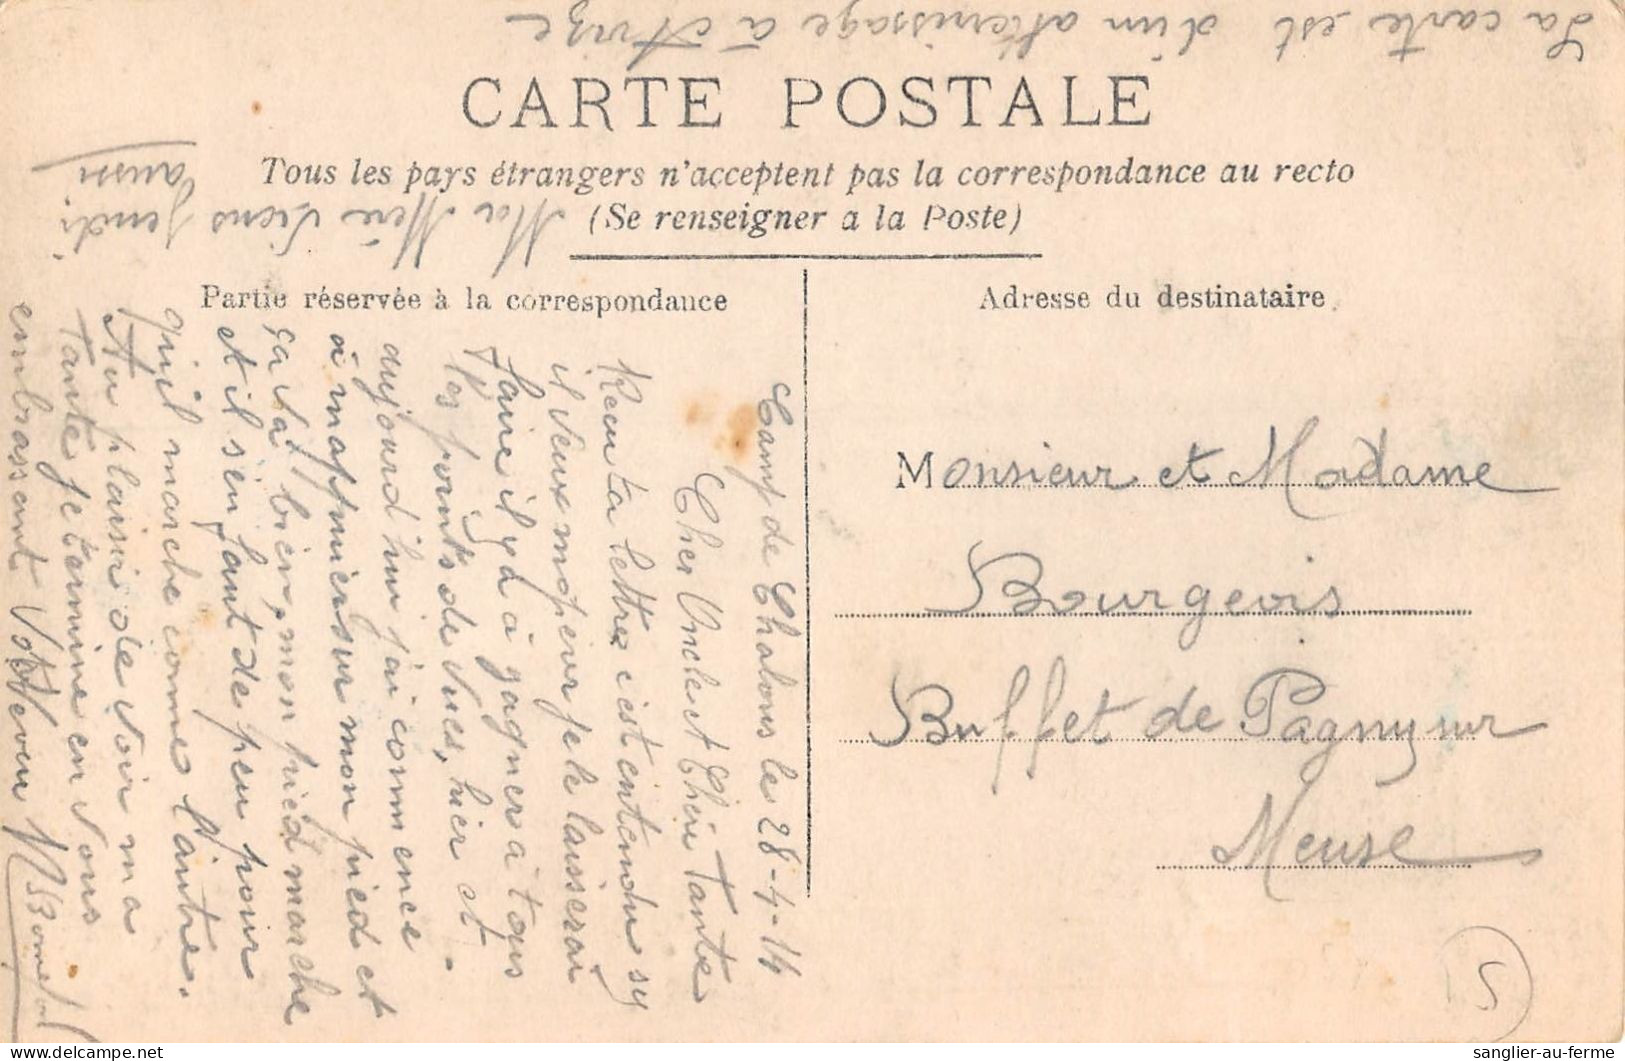 La carte est d'un atterrissage à Avize
CARTE POSTALE
Tous les pays étrangers n'acceptent pas la correspondance au recto
(Se renseigner a la Poste)
Ma Mère viens jeudi
aussi
Partie réservée à la correspondance
Adresse du destinataire
Camp de Chalons le 28-4-14
Cher Oncle et Chère Tante
Recu ta lettre c'est entendu sy
il veux mopérer je le laisserai
faire il y a à gagner à tous
les points de vues, hier et
aujourd'hui j'ai commence
à mappuier sur mon pied et
ça va bien, mon pied marche
et il s'en faut de peu pour
qu'il marche comme l'autre.
Au plaisir de voir ma
Tante je termine en vous
embrassant Votre Neveu
Monsieur et Madame
Bourgeois
Buffet de Pagny sur
Meuse
S
sanglier-au-ferme